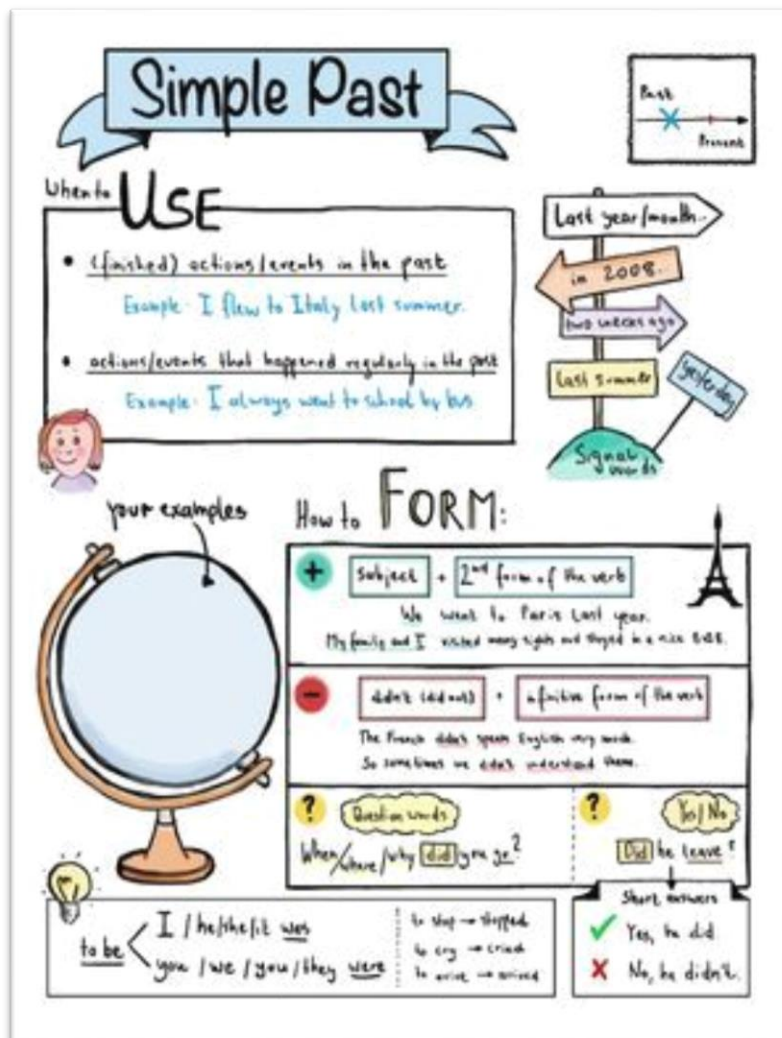 Simple Past
Past
Present
When to USE
• (finished) actions/events in the past
Example: I flew to Italy last summer.
• actions/events that happened regularly in the past
Example: I always went to school by bus
Last year/month..
in 2008.
two weeks ago
last summer
yesterday
Signal words
your examples
How to FORM:
+ subject + 2nd form of the verb
We went to Paris last year.
My family and I visited many sights and stayed in a nice B&B.
- didn't (did not) + infinitive form of the verb
The French didn't speak English very much.
So sometimes we didn't understand them.
? Question words
When/where/why did you go?
? Yes/No
Did he leave?
Short answers
Yes, he did.
No, he didn't.
to be
I / he/she/it was
you / we / you / they were
to stop → stopped
to cry → cried
to arrive → arrived